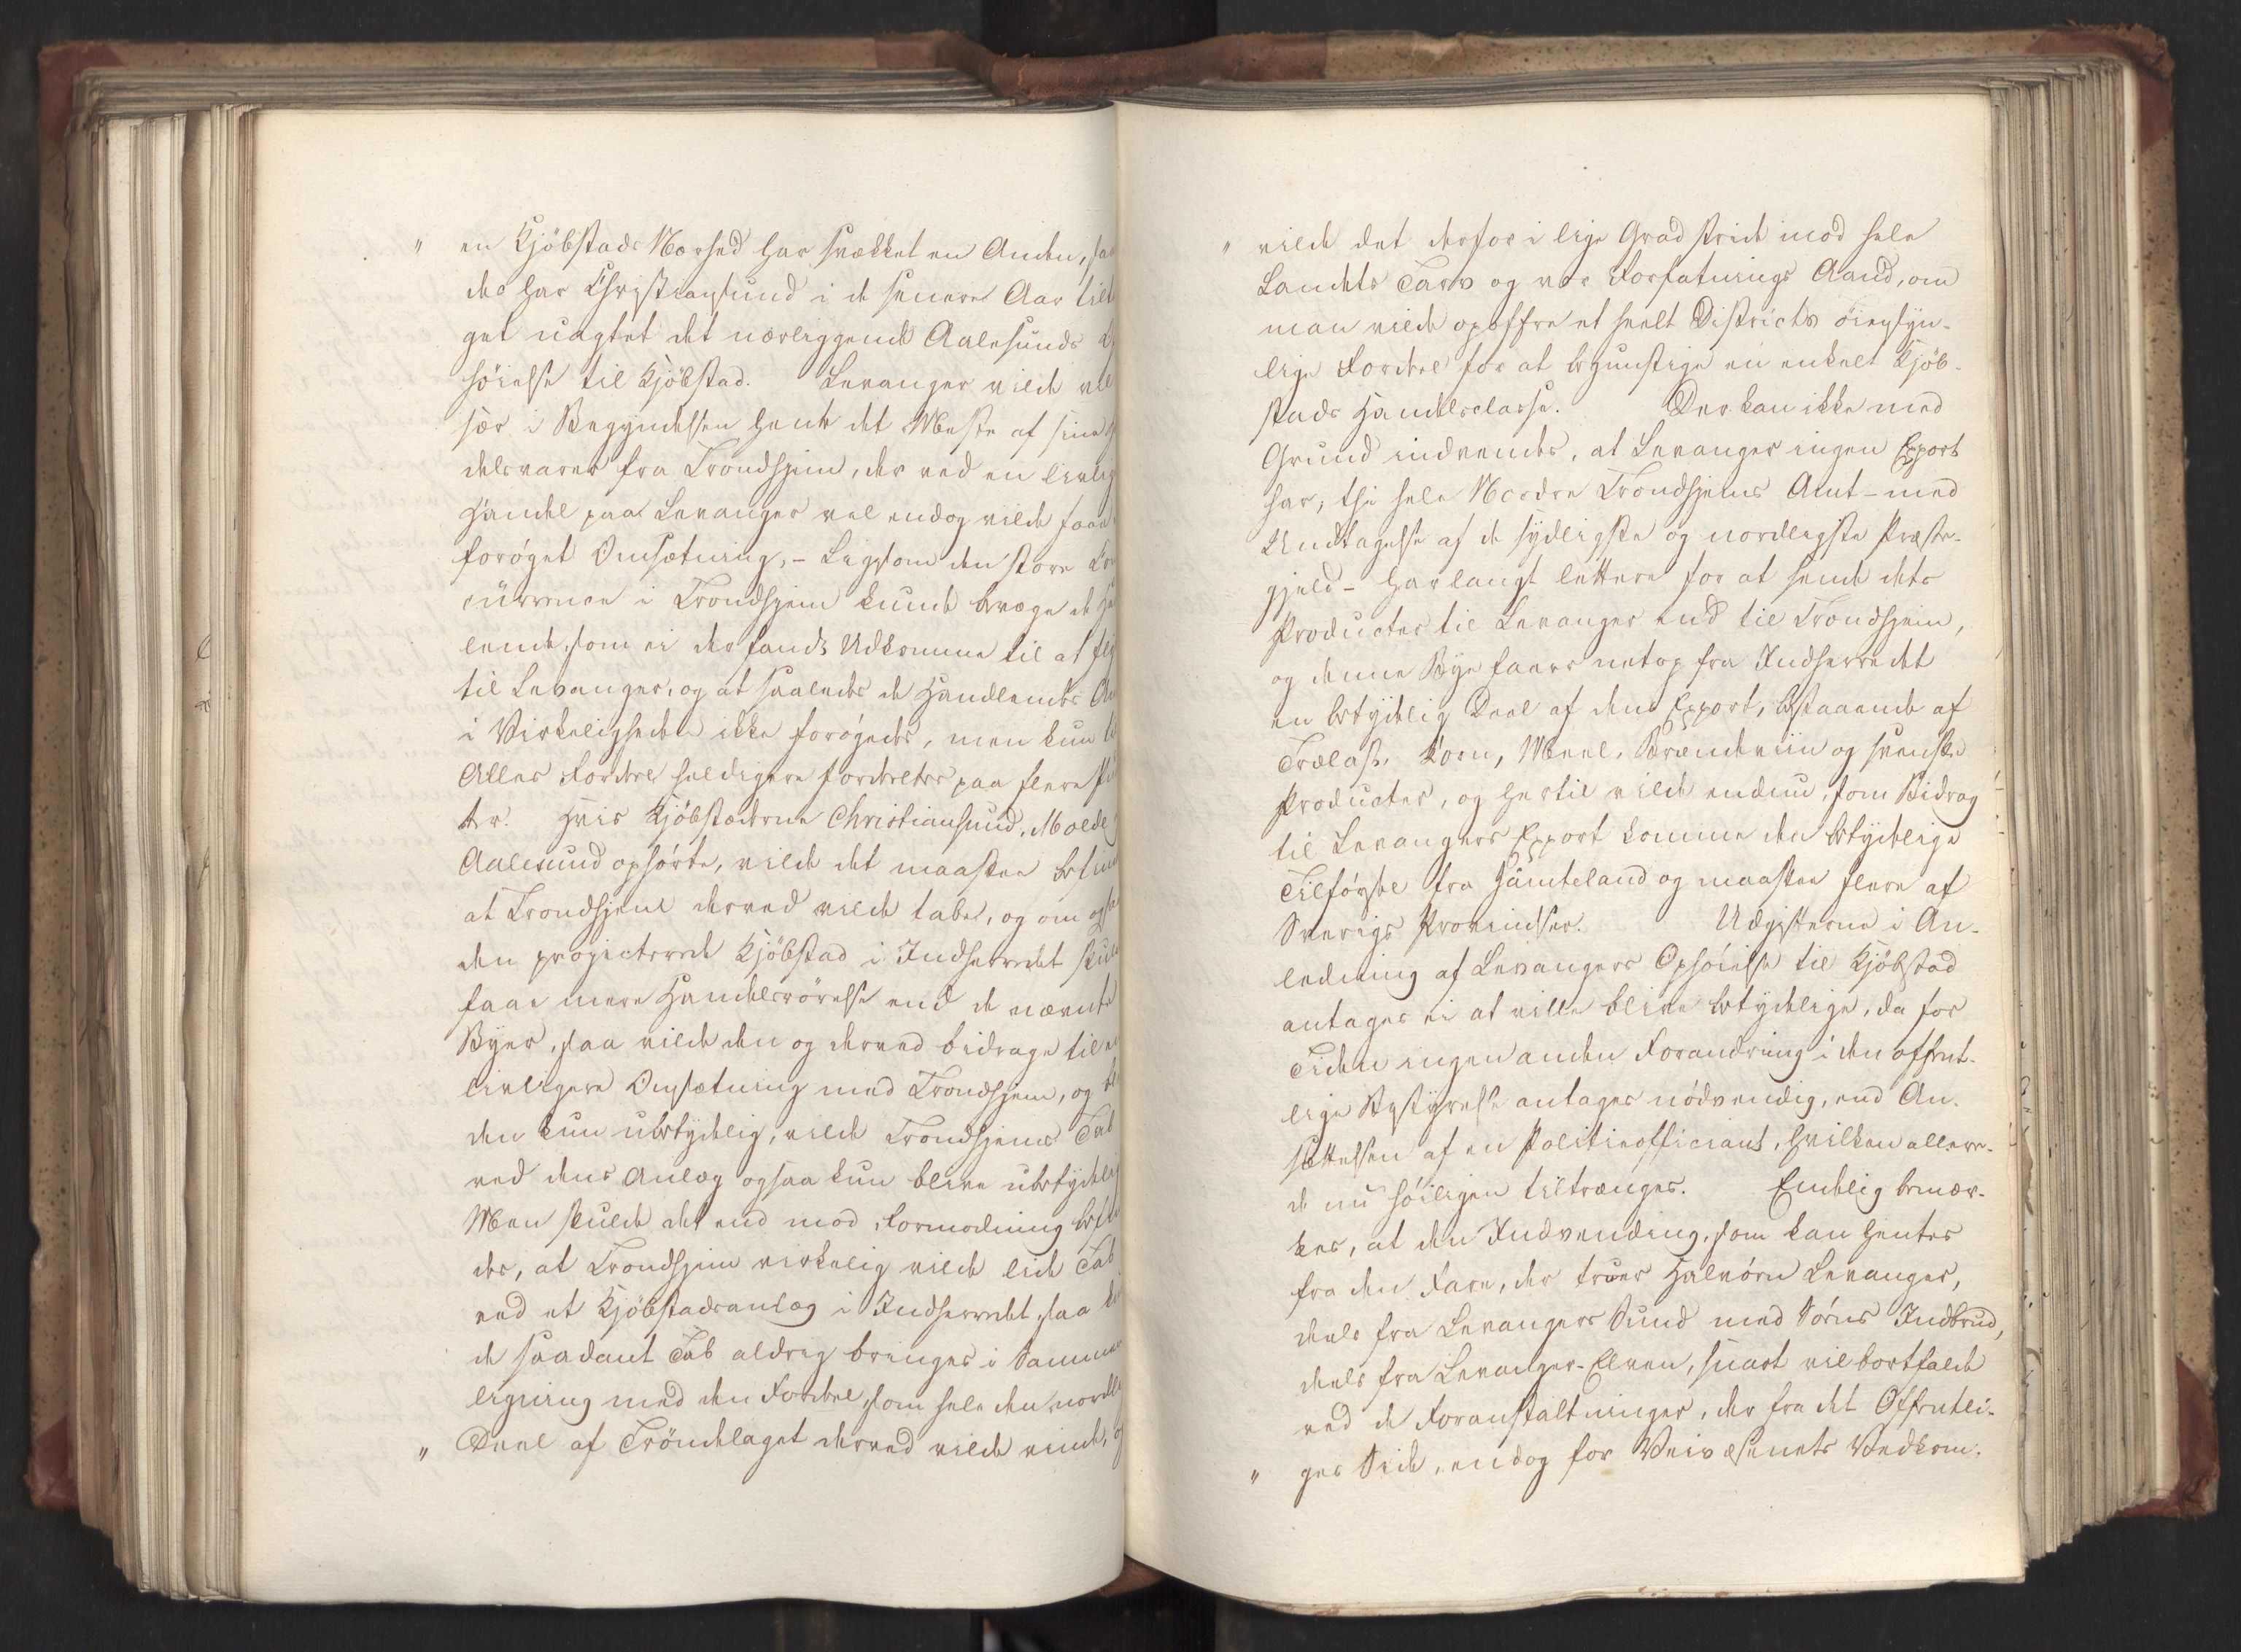 " en Kjöbstads Nærhed har svækket en Anden, saa
des har Christiansund i de senere Aar tilt
get uagtet det nærliggende Aalesunds
höielse til Kjöbstad. Levanger vilde
sær i Begyndelsen hente det Meste af sine
delsvarer fra Trondhjem, der ved en livlig
Handel paa Levanger vel endog vilde faae
forøget Omsætning, - Ligesom den store Con
currence i Trondhjem kunde bevæge de Ha
lende, som ei der fandt Udkomme til at fly
til Levanger, og at saaledes de Handlendes An
i Virkeligheden ikke forøgedes, men kun til
Alles Fordeel heldigere fordeeltes paa flere St
der. Hvis Kjöbstæderne Christiansund, Molde
Aalesund ophørte, vilde det maaskee befind
at Trondhjem derved vilde tabe, og om ogsaa
den projecterede Kjöbstad i Indherredet skul
faae mere Handelsrörelse end de nævnte
Byer, saa vilde den og derved bidrage til en
livligere Omsætning med Trondhjem, og
den kun ubetydelig, vilde Trondhjems Tab
ved dens Anlæg ogsaa kun blive ubetydelig
Men skulde det end mod Formodning befin
des, at Trondhjem virkelig vilde lide Tab
ved et Kjöbstadsanlæg i Indherredet, saa
de saadant Tab aldrig bringes i Sammen
ligning med den Fordeel, som hele den nordl
" Deel af Tröndelaget derved vilde vinde, og
" vilde det derfor i lige Grad stride mod hele
Landets Tarv og vor Forfatnings Aand, om
man vilde opoffre et heelt Districts öiensyn-
lige Fordeel for at begunstige en enkelt Kjöb-
stads Handelsclasse. Der kan ikke med
Grund indvendes, at Levanger ingen Export
har; thi hele Nordre Trondhjems Amt - med
Undtagelse af de sydligste og nordligste Præste-
gjeld - har langt lettere for at sende dets
Producter til Levanger end til Trondhjem,
og denne Bye faaer netop fra Indherredet
en betydelig Deel af dens Export, bestaaende af
Trælast, Korn, Meel, Brændeviin og svenske
Producter, og hertil vilde endnu, som Bidrag
til Levangers Export komme den betydelige
Tilførsel fra Jämteland og maaskee flere af
Sverigs Provindser. Udgifterne i An-
ledning af Levangers Ophøielse til Kjöbstad
antages ei at ville blive betydelige, da for
Tiden ingen anden Forandring i den offent-
lige Bestyrelse antages nödvendig, end An-
sættelsen af en Politieofficiant, hvilken allere-
de nu höiligen tiltrænges. Endelig bemær-
kes, at den Indvending, som kan hentes
fra den Fare, der truer Halvøen Levanger,
deels fra Levangers Sund med Søens Indbrud,
deels fra Levanger-Elven, snart vil bortfalde
ved de Foranstaltninger, der fra det Offentli-
" ges Side, endog for Veivæsenets Vedkom-